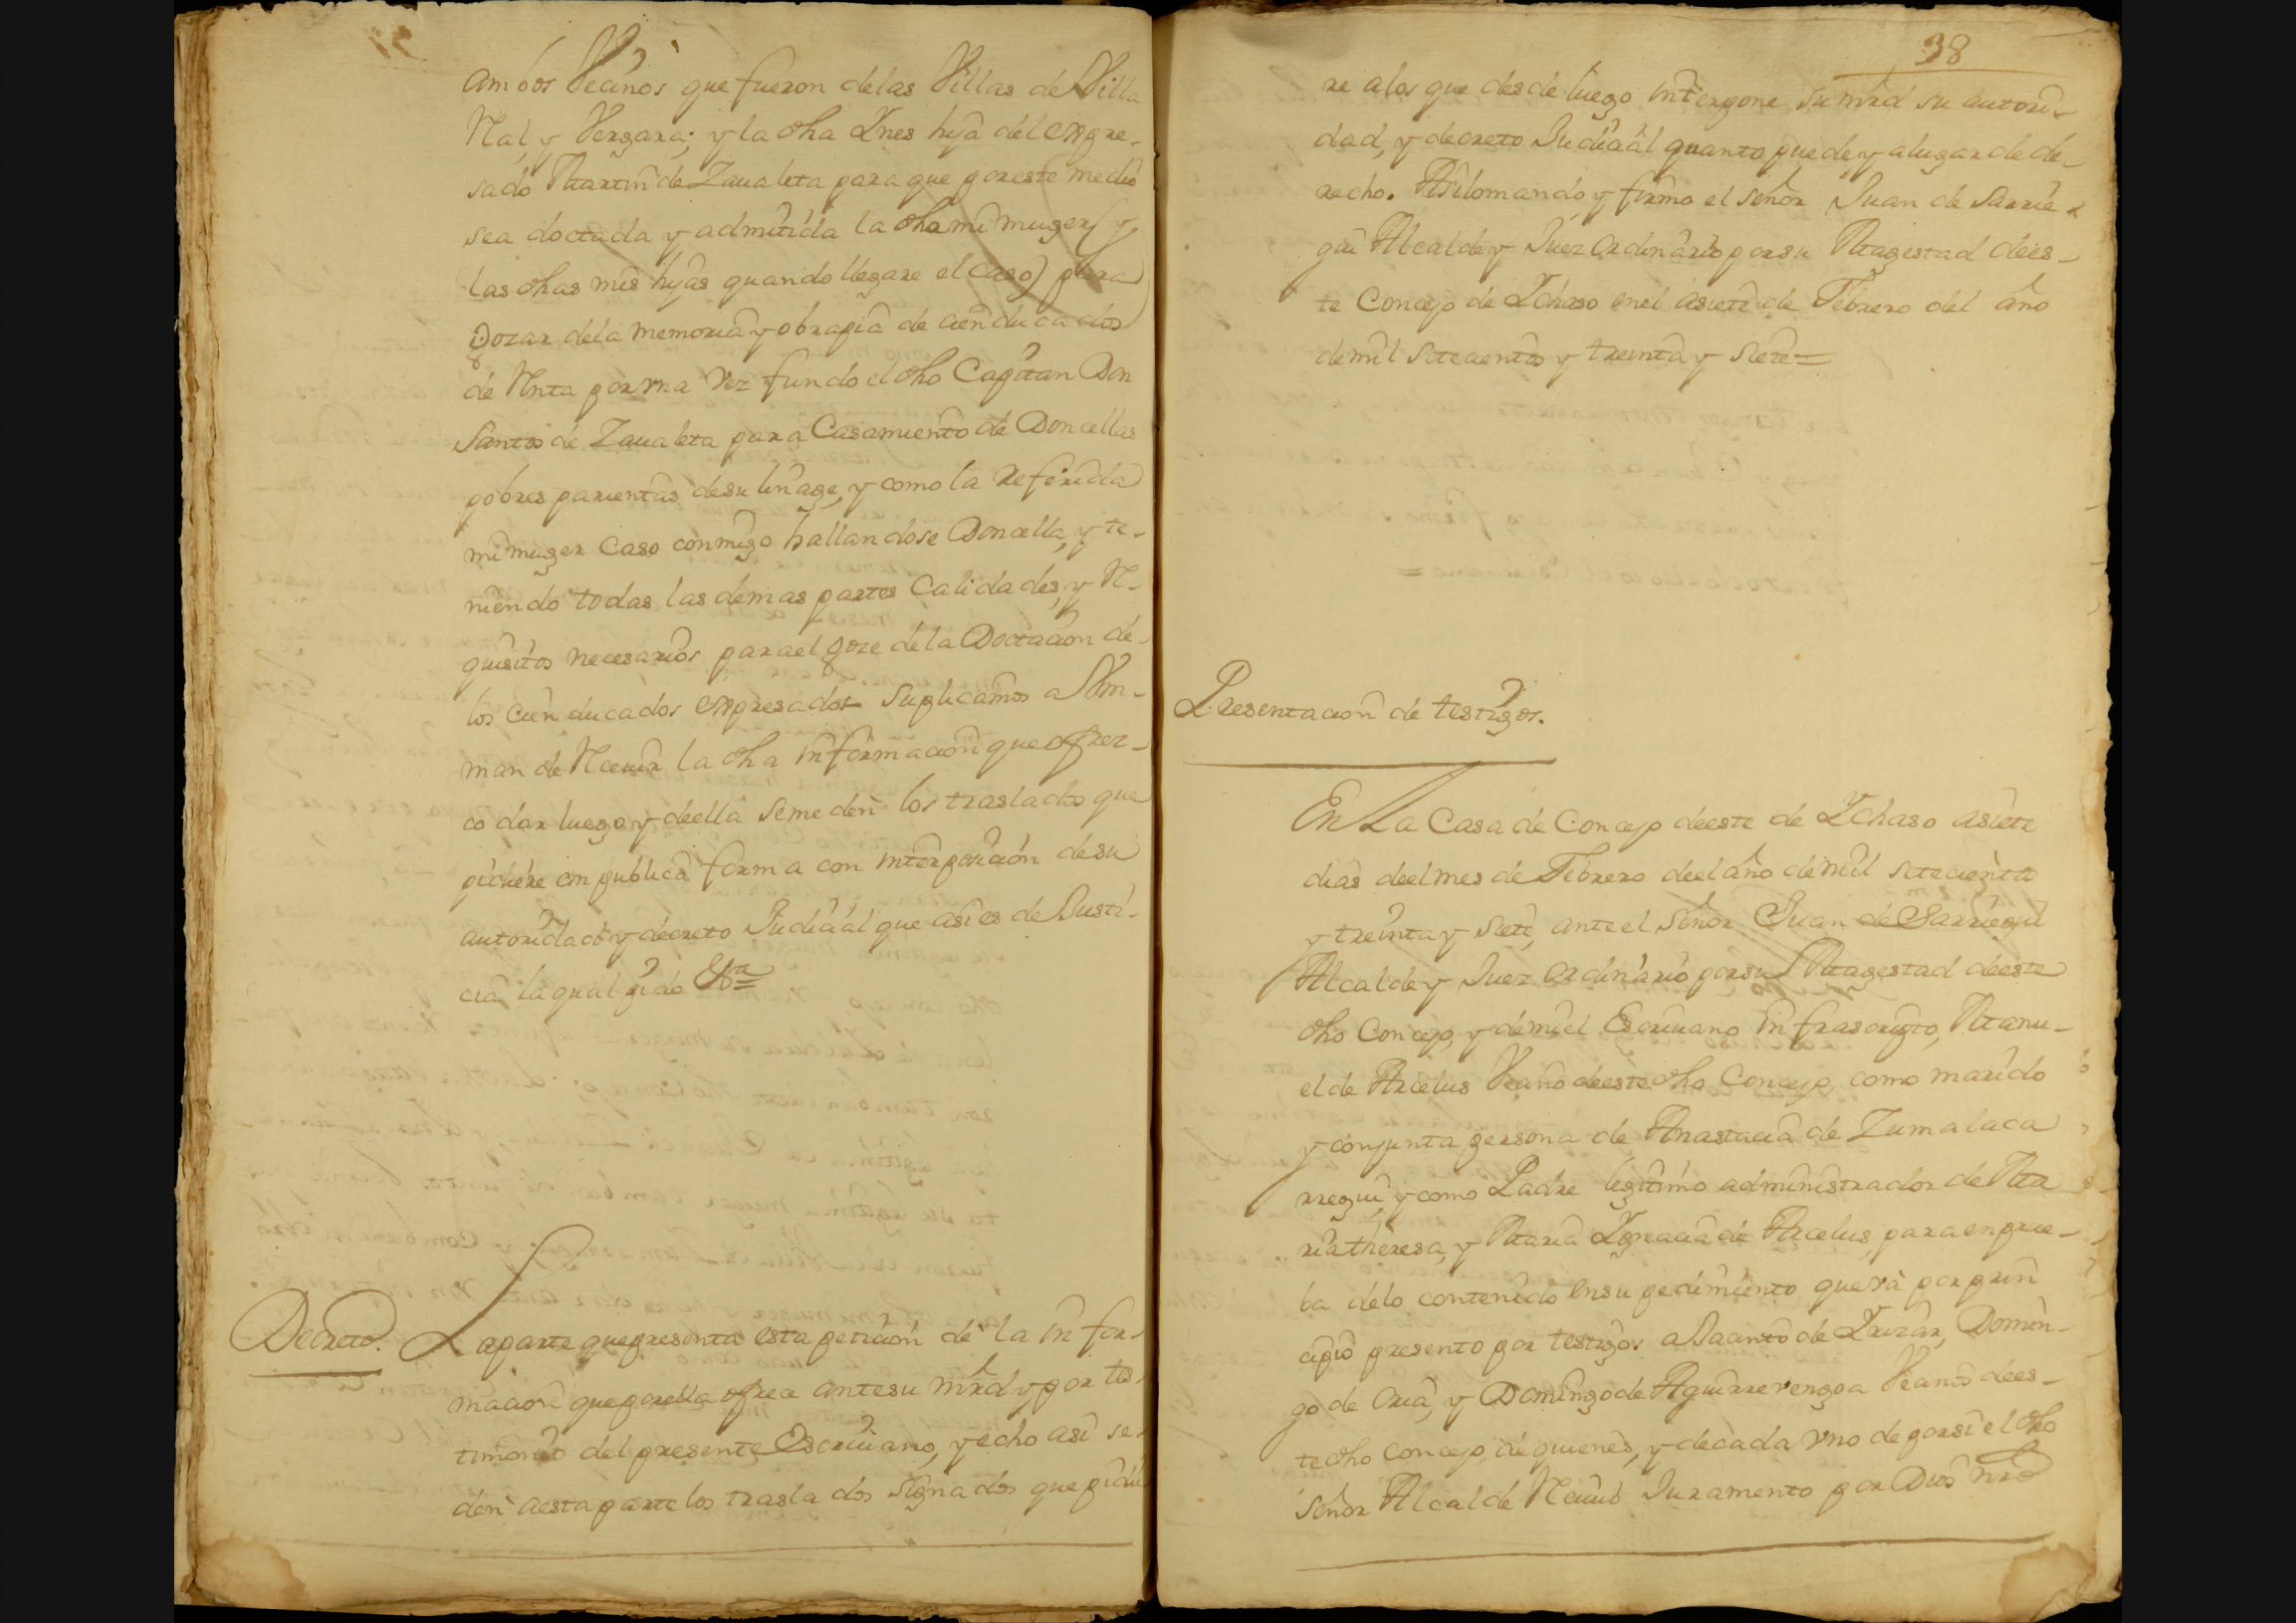 ambos Vecinos que fueron delas Villas de Villa
Ral, y Vergara; y la dha Ynes hija del expre-
sado Martin de Zaualeta para que por este medio
sea doctada y admitida la dha mi muger (y
las dhas mis hijas quando llegare el caso) para
gozar dela memoria y obrapia de cien ducados
de Rnta por vna Vez fundo el dho Capitan Don
Santos de Zaualeta para Casamiento de Doncellas
pobres parientas desu linage, y como la Referida
mi muger Caso conmigo hallandose Doncella, y te-
niendo todas las demas partes Calidades, y R-
quisitos necesarios para el goze de la Doctacion de
los cien ducados expresados suplicamos a Vm-
man de Receuir la dha informacion que ofrez-
co dar luego y deella seme den los traslados que
pidiere en publica forma con interposicion desu
autoridad y decreto Judicial que asi es de Justi-
cia la qual pido &ª
Decreto. La parte que presenta esta peticion de la infor-
macion que por ella ofrece ante su mrd y por tes-
timonio del presente Escriuano, y echo asi se
den aesta parte los traslados signados que pidie
38
re alos que desde luego interpone su mrd su autori-
dad, y decreto Judicial quanto puede y alugar de de-
recho. Asilomando y firmo el señor Juan de Sarrie
gui Alcalde y Juez ordinario por su Magestad dees-
te Concejo de Ychaso en el asiete de Febrero del año
de mil setecientos y treinta y siete=
Presentacion de testigos.
En La Casa de Concejo deeste de Ychaso asiete
dias deel mes de Febrero deel año de mil setecientos
y treinta y siete, ante el señor Juan de Sarriegui
Alcalde y Juez ordinario por su Magestad deeste
dho Concejo, y de mi el Escriuano infrascripto, Manu-
el de Arcelus Vecino deeste dho Concejo, como marido
y conjunta persona de Anastacia de Zumalaca
rregui, y como Padre legitimo administrador de Ma
ria theresa, y Maria Ygnacia de Arcelus, para en prue-
ba delo contenido en su pedimiento que va por prin
cipio presento por testigos a Jacinto de Yrizar, Domin-
go de Oria, y Domingo de Aguirrerengoa Vecinos dees-
te dho concejo, de quienes, y de cada vno de por si el dho
señor Alcalde Reciuio Juramento por Dios nro